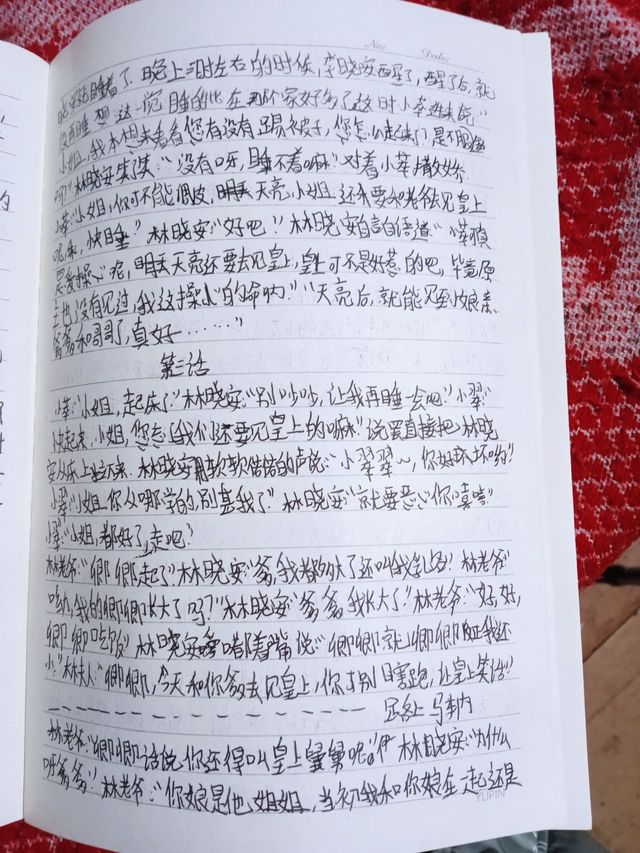 No:  Date:
就睡着了。晚上三时左右的时候,李晓安醒了,醒了后,就
没再睡,想这一觉睡的比在那个家好多了这时小翠进来说:"
小姐,我本想来看看您有没有踢被子,您怎么起来了,是不服
吗?"林晓安失笑:"没有呀,睡不着嘛"对着小翠撒娇
小翠:"小姐,你可不能调皮,明天天亮,小姐还要和老爷去见皇上
呢,乖,快睡"林晓安:"好吧!"林晓安自言自语道:"小翠真
是爱操心呢,明天天亮还要去见皇上,皇上可不是好惹的吧,毕竟原
主也没有见过,我这操心的命哟!""天亮后,就能见到娘亲、
爹爹和哥哥了,真好……"
第三话
小翠:"小姐,起床了"林晓安:"别吵吵,让我再睡一会吧!"小翠:"
快起来,小姐,您忘了我们还要见皇上的嘛"说罢直接把林晓
安从床上拉下来,林晓安用软软糯糯的声说:"小翠翠~,你好坏坏哟!"
小翠:"小姐你从哪学的,别恶我了"林晓安:"就要恶心你嘻嘻"
小翠:"小姐,都好了,走吧?
林老爷:"卿卿起了"林晓安:"爹,我都长大了还叫我乳名!林老爷:"
哎哟,我的卿卿长大了吗?"林晓安:"爹爹,我长大了"林老爷:"好,好,
卿卿吃饭"林晓安嘟着嘴说:"卿卿就卿卿呗我还
小"林夫人:"卿卿,今天和你爹去见皇上,你才别瞎跑,让皇上笑话"
路上 马车内
林老爷:"卿卿话说你还得叫皇上舅舅呢。"林晓安:"为什么
呀爹爹?"林老爷:"你娘是他姐姐,当初我和你娘在一起还是
YUPIN